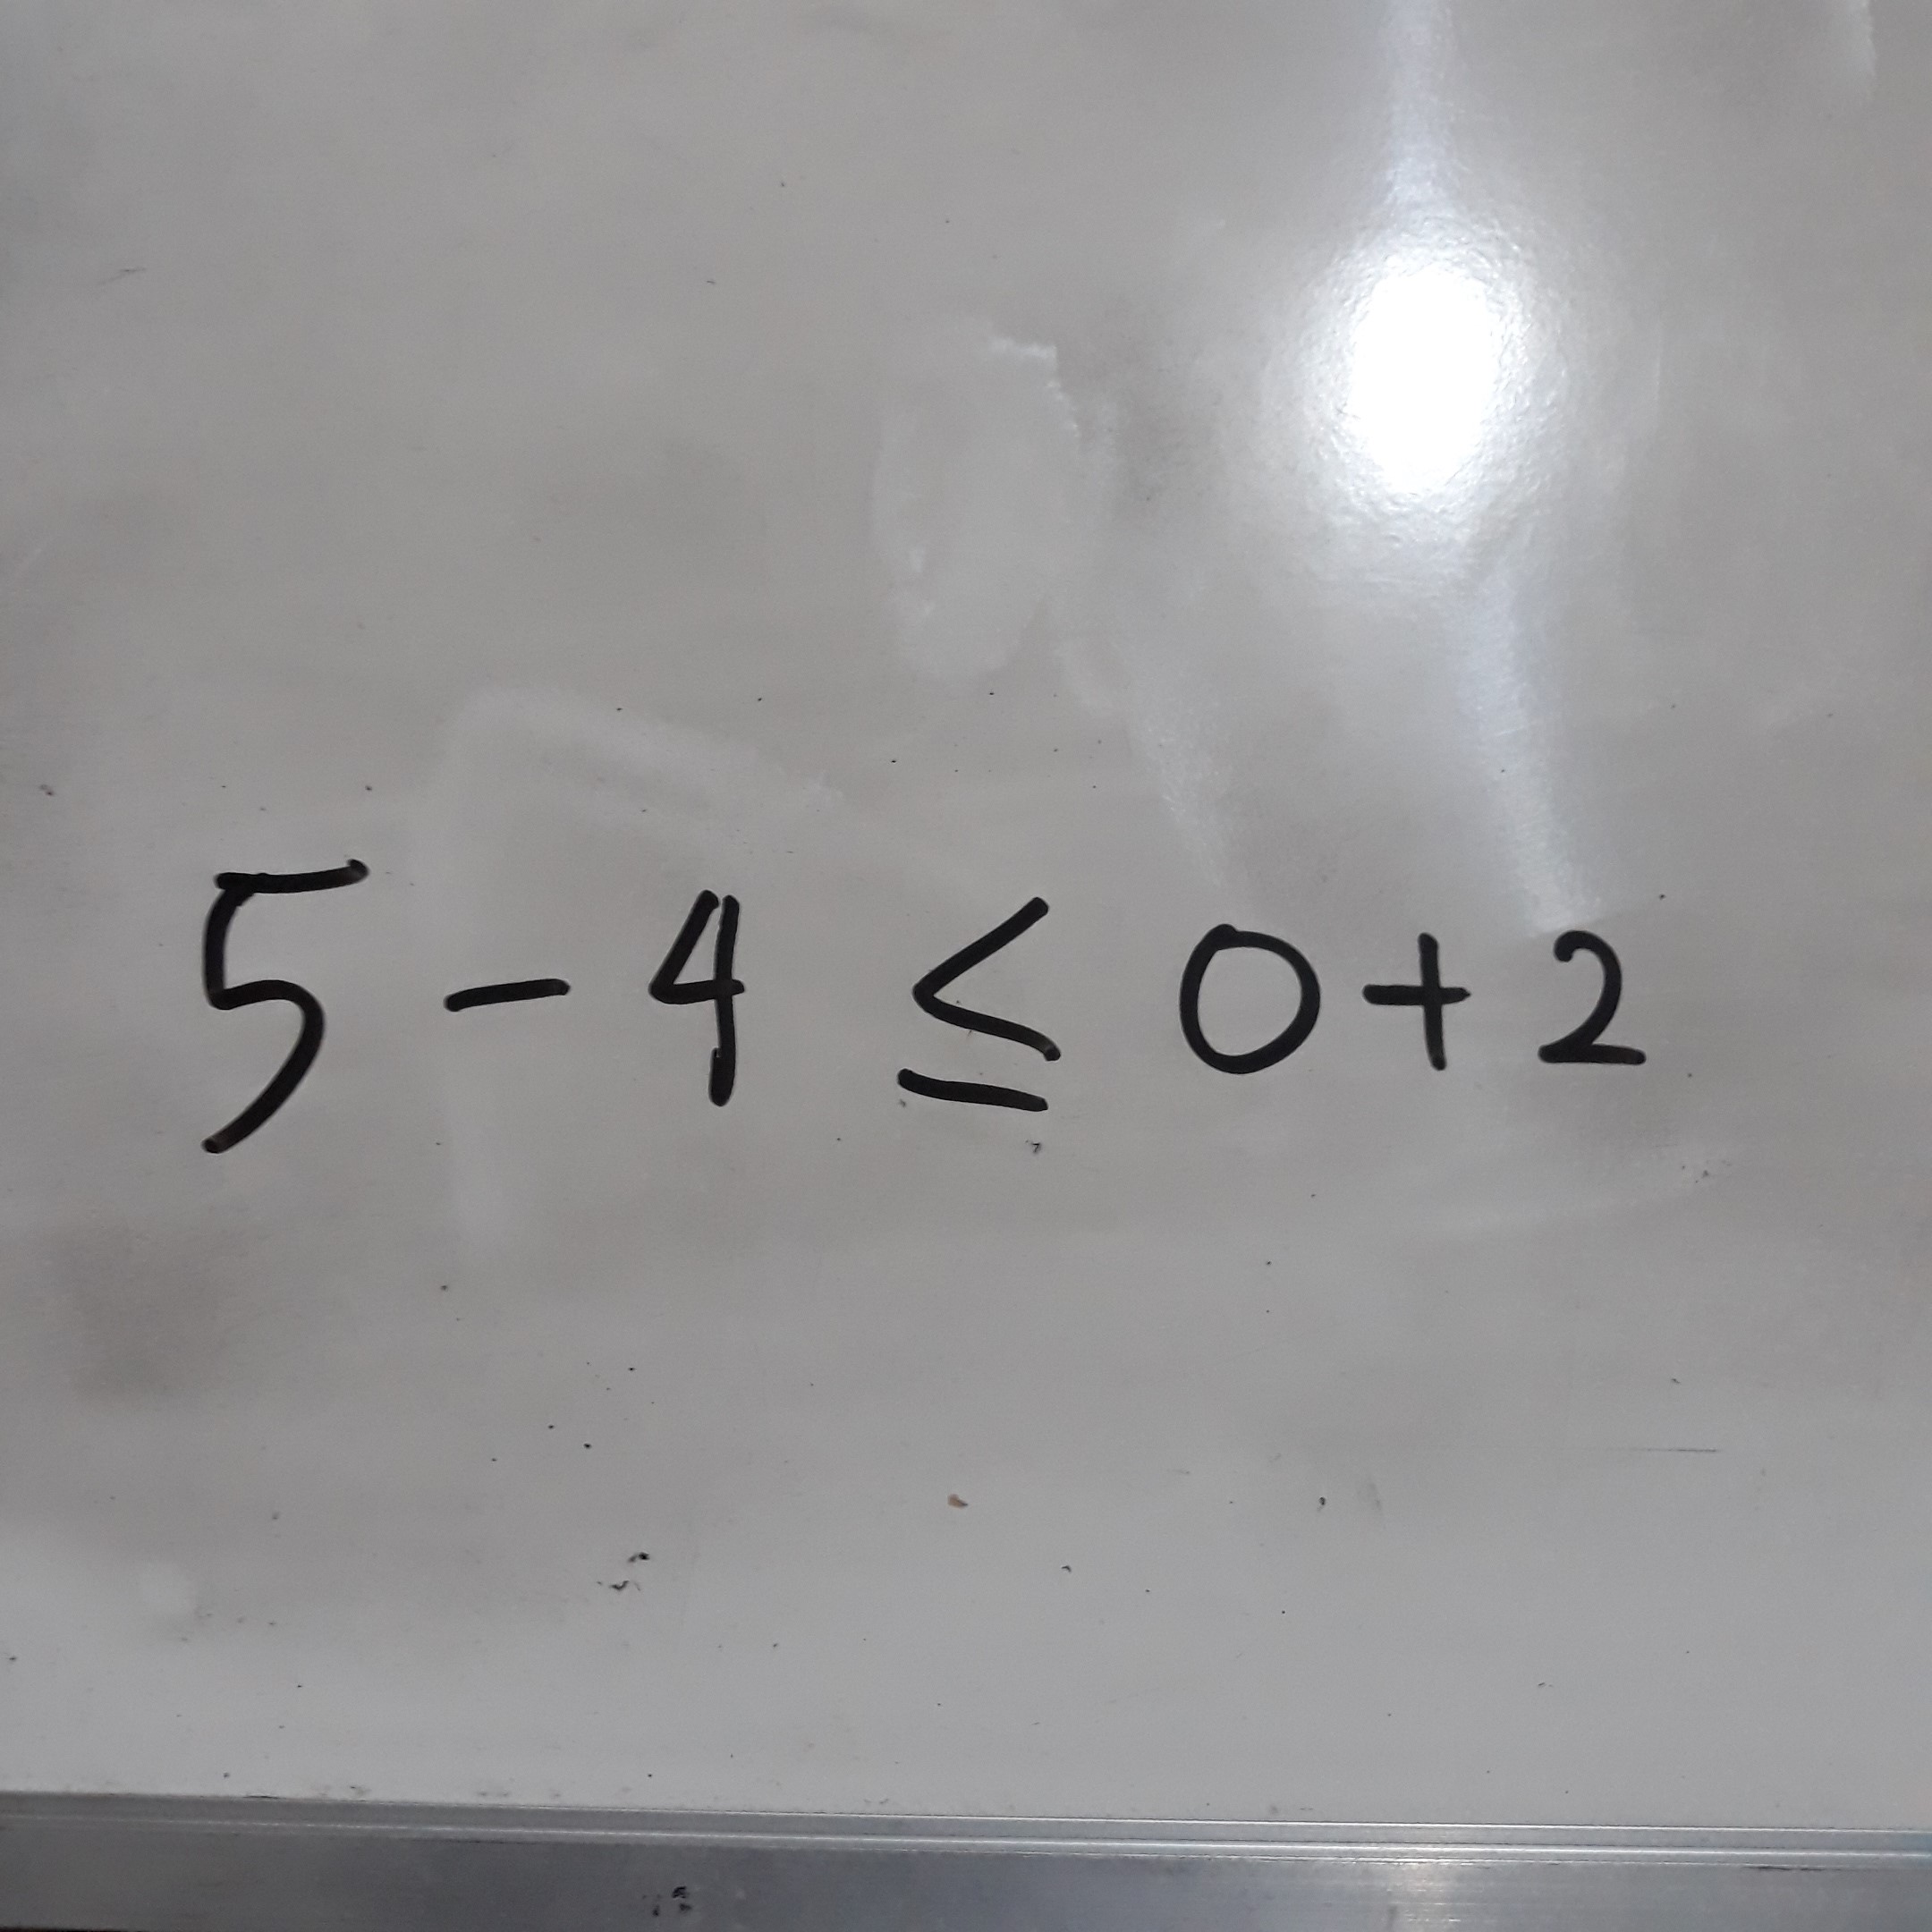 5 - 4 ≤ 0 + 2